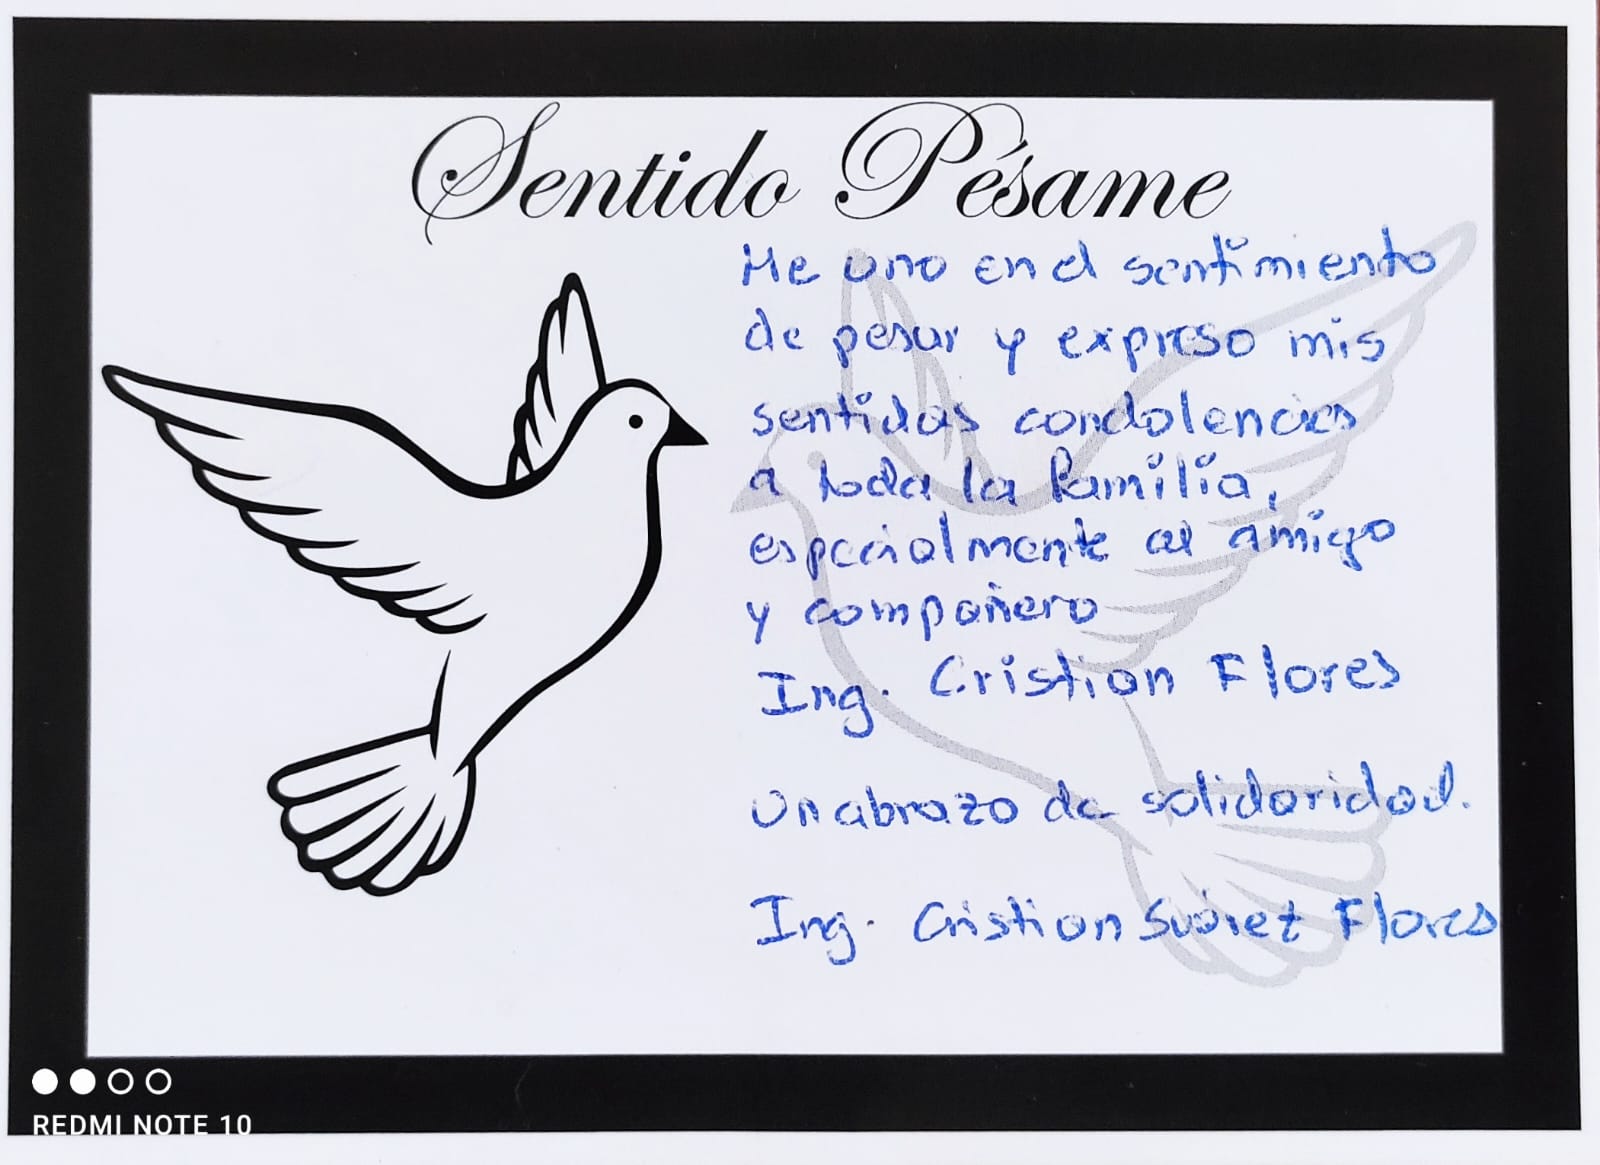 Sentido Pésame
Me uno en el sentimiento
de pesar y expreso mis
sentidas condolencias
a toda la familia,
especialmente al amigo
y compañero
Ing. Cristian Flores
Un abrazo de solidaridad.
Ing. Cristian Suárez Flores
REDMI NOTE 10